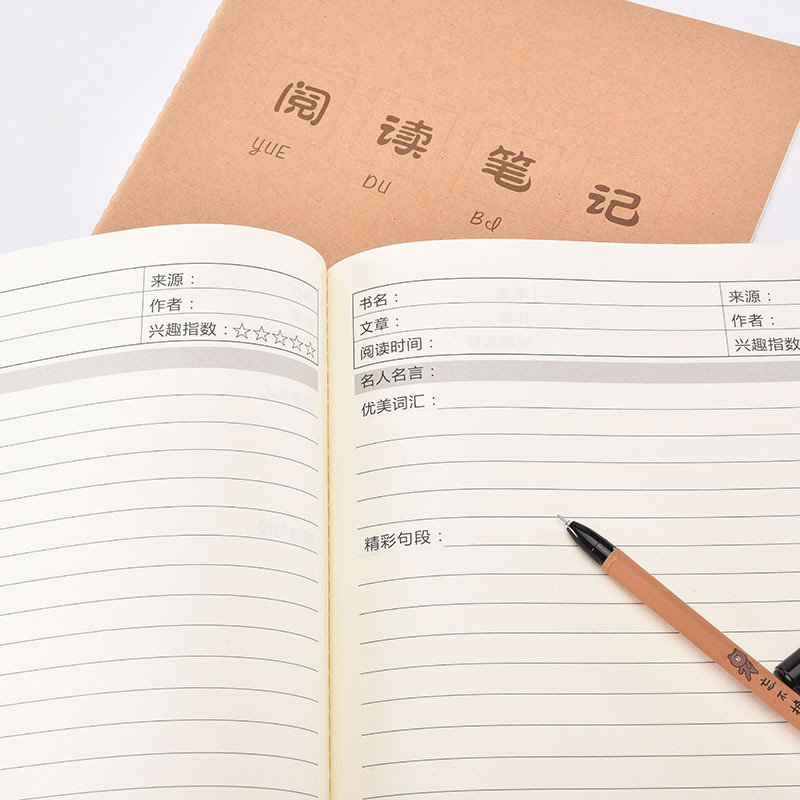 阅读笔记
YUE DU BJ
来源：
作者：
兴趣指数：☆☆☆☆☆
书名： 来源：
文章： 作者：
阅读时间： 兴趣指数
名人名言：
优美词汇：
精彩句段：
忘不掉